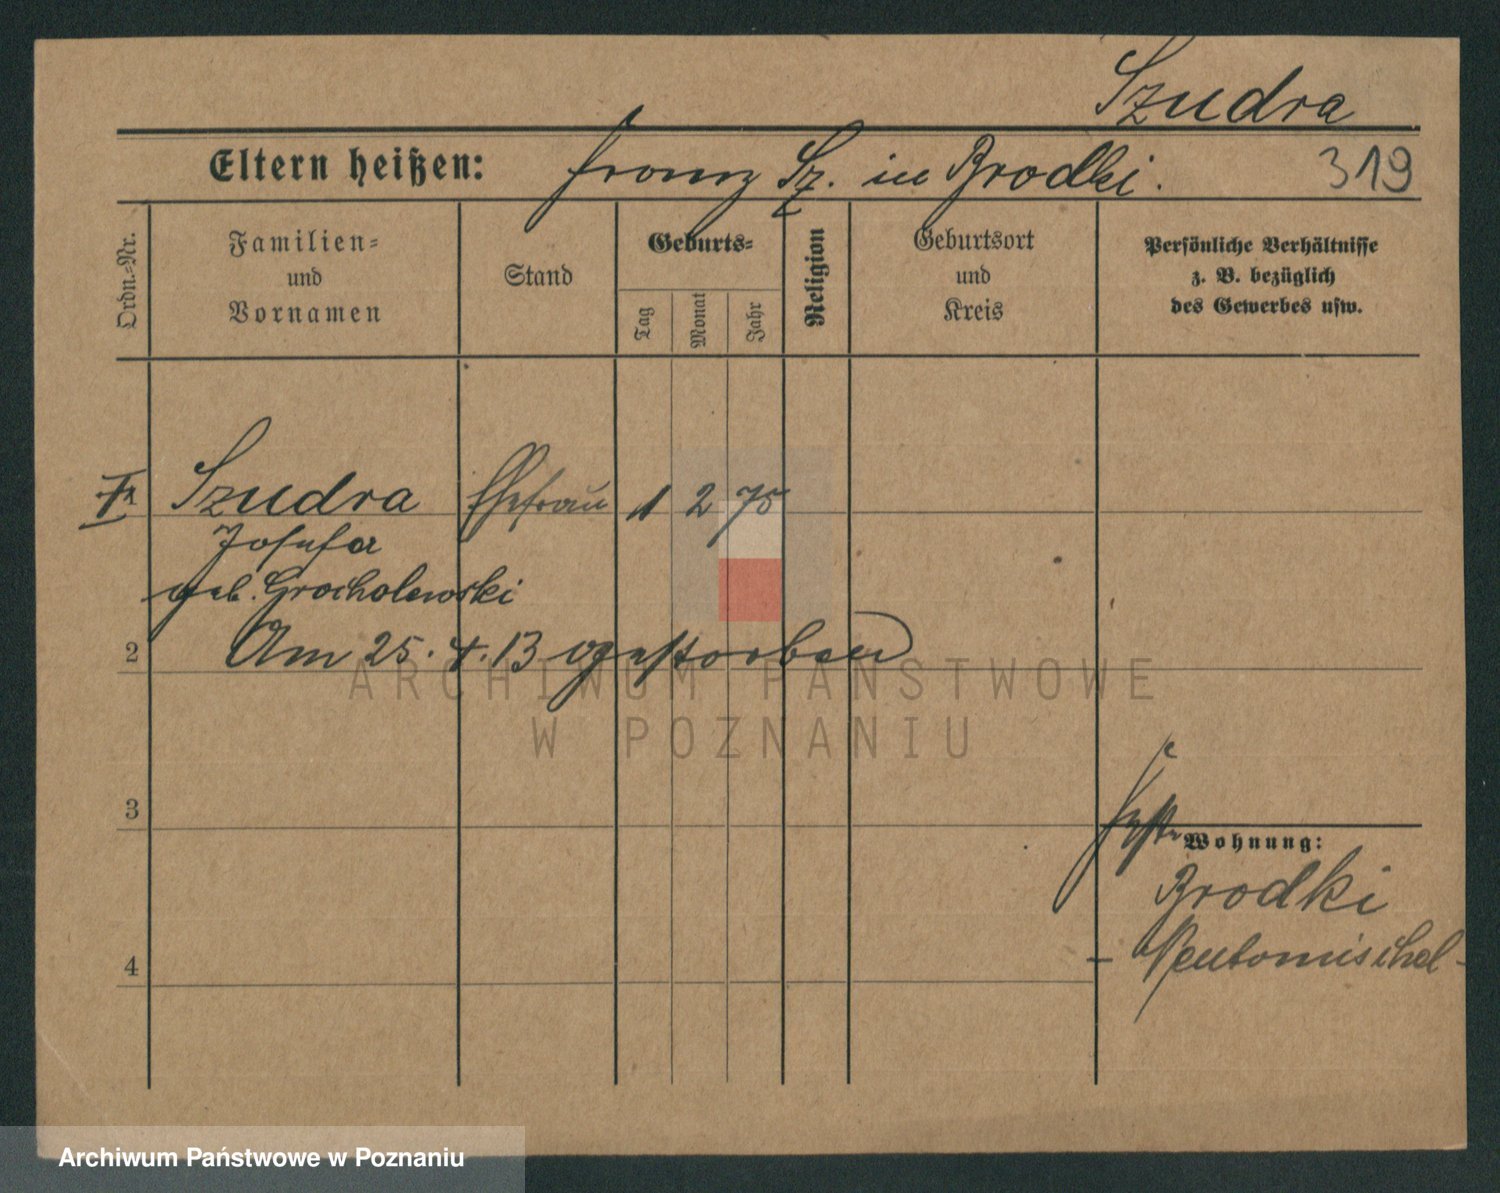 Szudra
Eltern heißen: Franz Sz. in Brodki.
319
Ordn.-Nr.
Familien-
und
Vornamen
Stand
Geburts-
Tag
Monat
Jahr
Religion
Geburtsort
und
Kreis
Persönliche Verhältnisse
z. B. bezüglich
des Gewerbes usw.
Szudra Ehefrau 1 2 75
Josefa
geb. Grocholewski
2 Am 25. 4. 13 gestorben
ARCHIWUM PAŃSTWOWE
W POZNANIU
3
Wohnung:
Brodki
4
- Neutomischel -
Archiwum Państwowe w Poznaniu